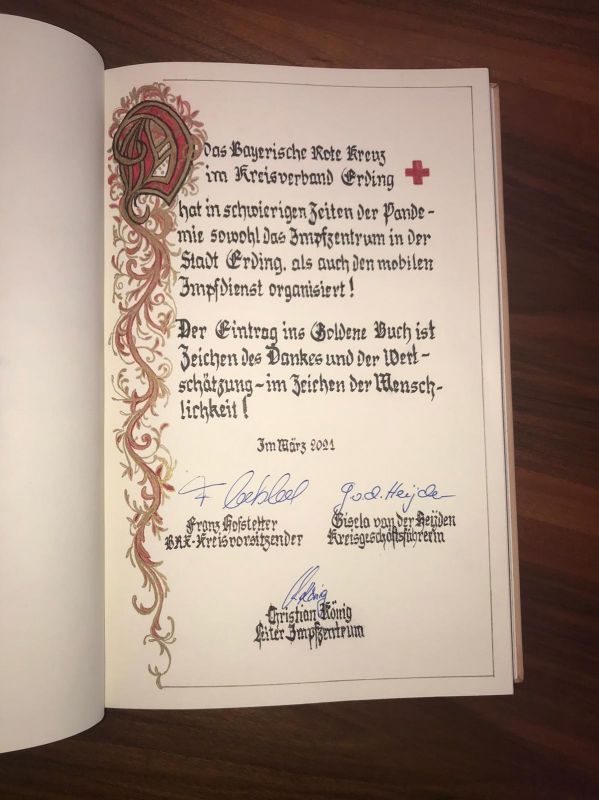 Das Bayerische Rote Kreuz
im Kreisverband Erding
hat in schwierigen Zeiten der Pande-
mie sowohl das Impfzentrum in der
Stadt Erding, als auch den mobilen
Impfdienst organisiert!
Der Eintrag ins Goldene Buch ist
Zeichen des Dankes und der Wert-
schätzung - im Zeichen der Mensch-
lichkeit!
Im März 2021
Franz Hofstetter
BRK-Kreisvorsitzender
G. v. d. Heijden
Gisela van der Heijden
Kreisgeschäftsführerin
König
Christian König
Leiter Impfzentrum